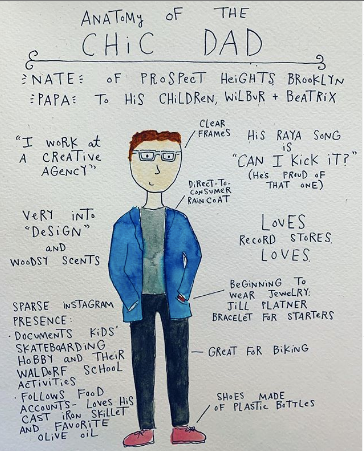 ANATOMY OF THE
CHIC DAD
NATE OF PROSPECT HEIGHTS BROOKLYN
PAPA TO HIS CHILDREN, WILBUR + BEATRIX
"I WORK AT
A CREATIVE
AGENCY"
CLEAR
FRAMES
HIS RAYA SONG
IS
"CAN I KICK IT?"
(HE'S PROUD OF
THAT ONE)
DIRECT-TO-
CONSUMER
RAINCOAT
VERY INTO
"DESIGN"
AND
WOODSY SCENTS
LOVES
RECORD STORES,
LOVES.
BEGINNING TO
WEAR JEWELRY:
JILL PLATNER
BRACELET FOR STARTERS
SPARSE INSTAGRAM
PRESENCE:
· DOCUMENTS KIDS'
SKATEBOARDING
HOBBY AND THEIR
WALDORF SCHOOL
ACTIVITIES
· FOLLOWS FOOD
ACCOUNTS- LOVES HIS
CAST IRON SKILLET
AND FAVORITE
OLIVE OIL
GREAT FOR BIKING
SHOES MADE
OF PLASTIC BOTTLES